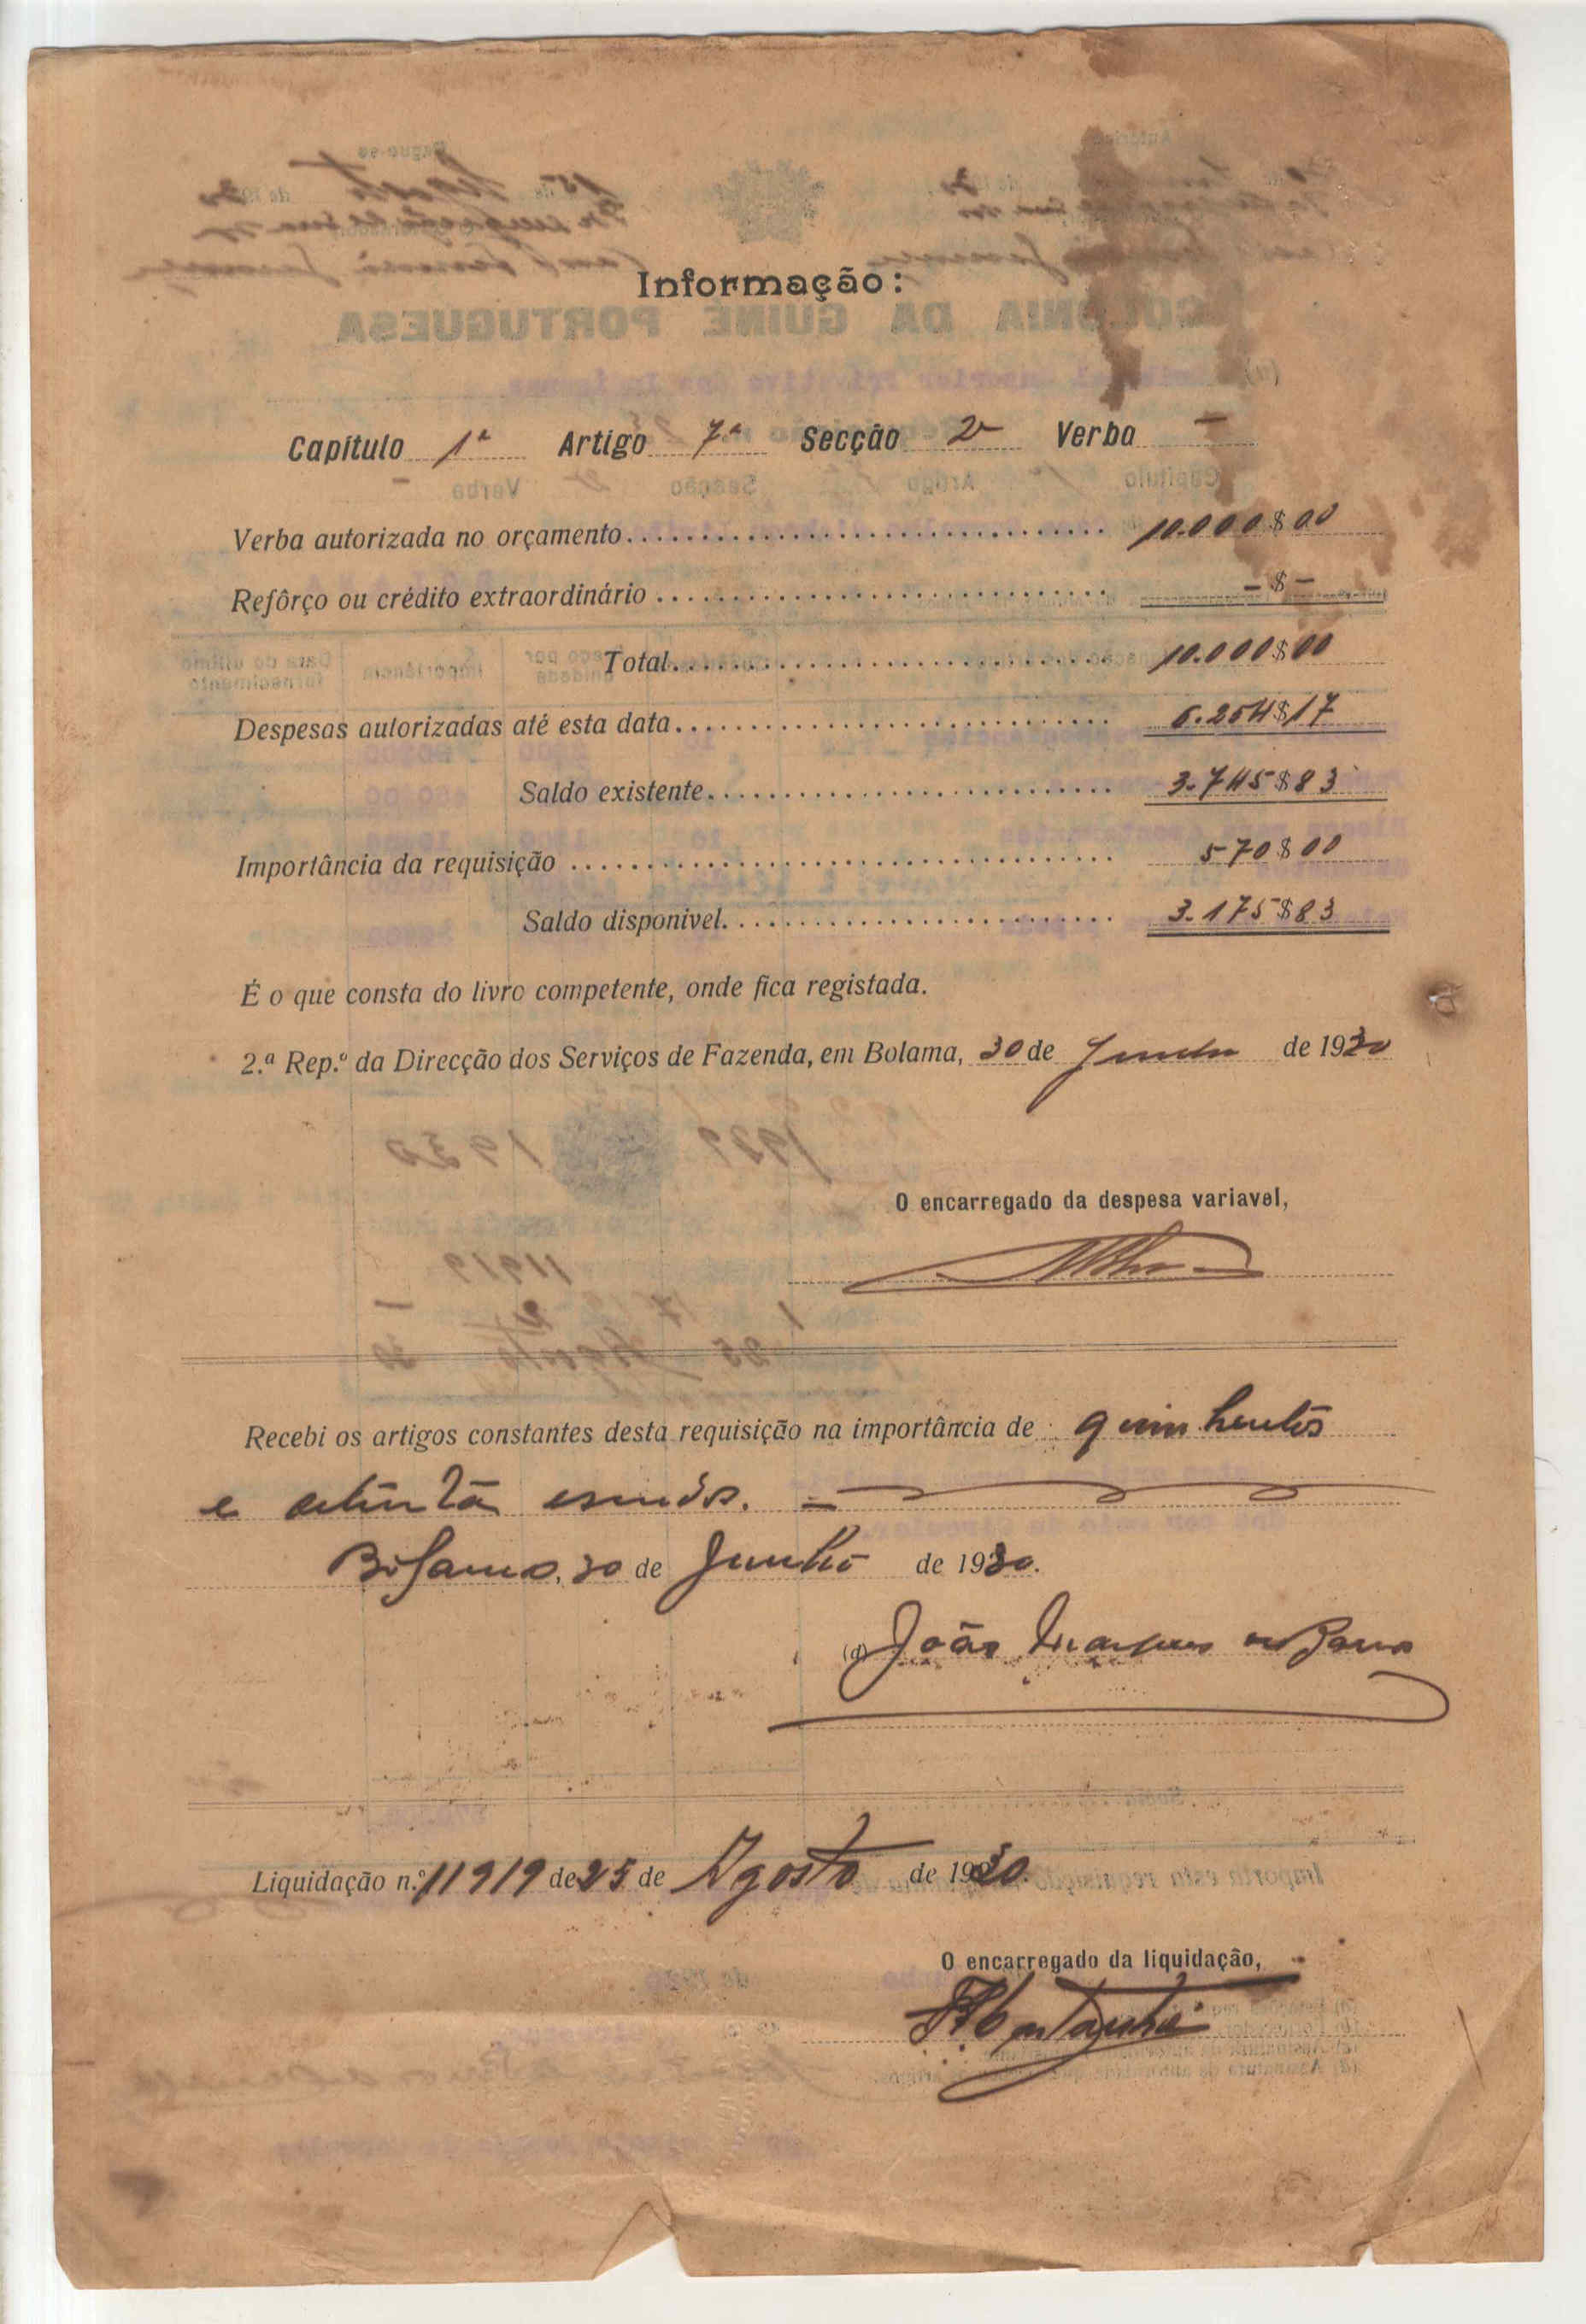 Informação:
Capítulo 1º Artigo 7º Secção 2ª Verba —
Verba autorizada no orçamento 10.000$00
Refôrço ou crédito extraordinário —$—
Total 10.000$00
Despesas autorizadas até esta data 6.254$17
Saldo existente 3.745$83
Importância da requisição 570$00
Saldo disponivel 3.175$83
É o que consta do livro competente, onde fica registada.
2.ª Rep.º da Direcção dos Serviços de Fazenda, em Bolama, 30 de Junho de 1930
O encarregado da despesa variavel,
Recebi os artigos constantes desta requisição na importância de quinhentos
e setenta escudos. —
Bolama, 30 de Junho de 1930.
(d) João Marques de Barros
Liquidação n.º 11919 de 25 de Agosto de 1930.
O encarregado da liquidação,